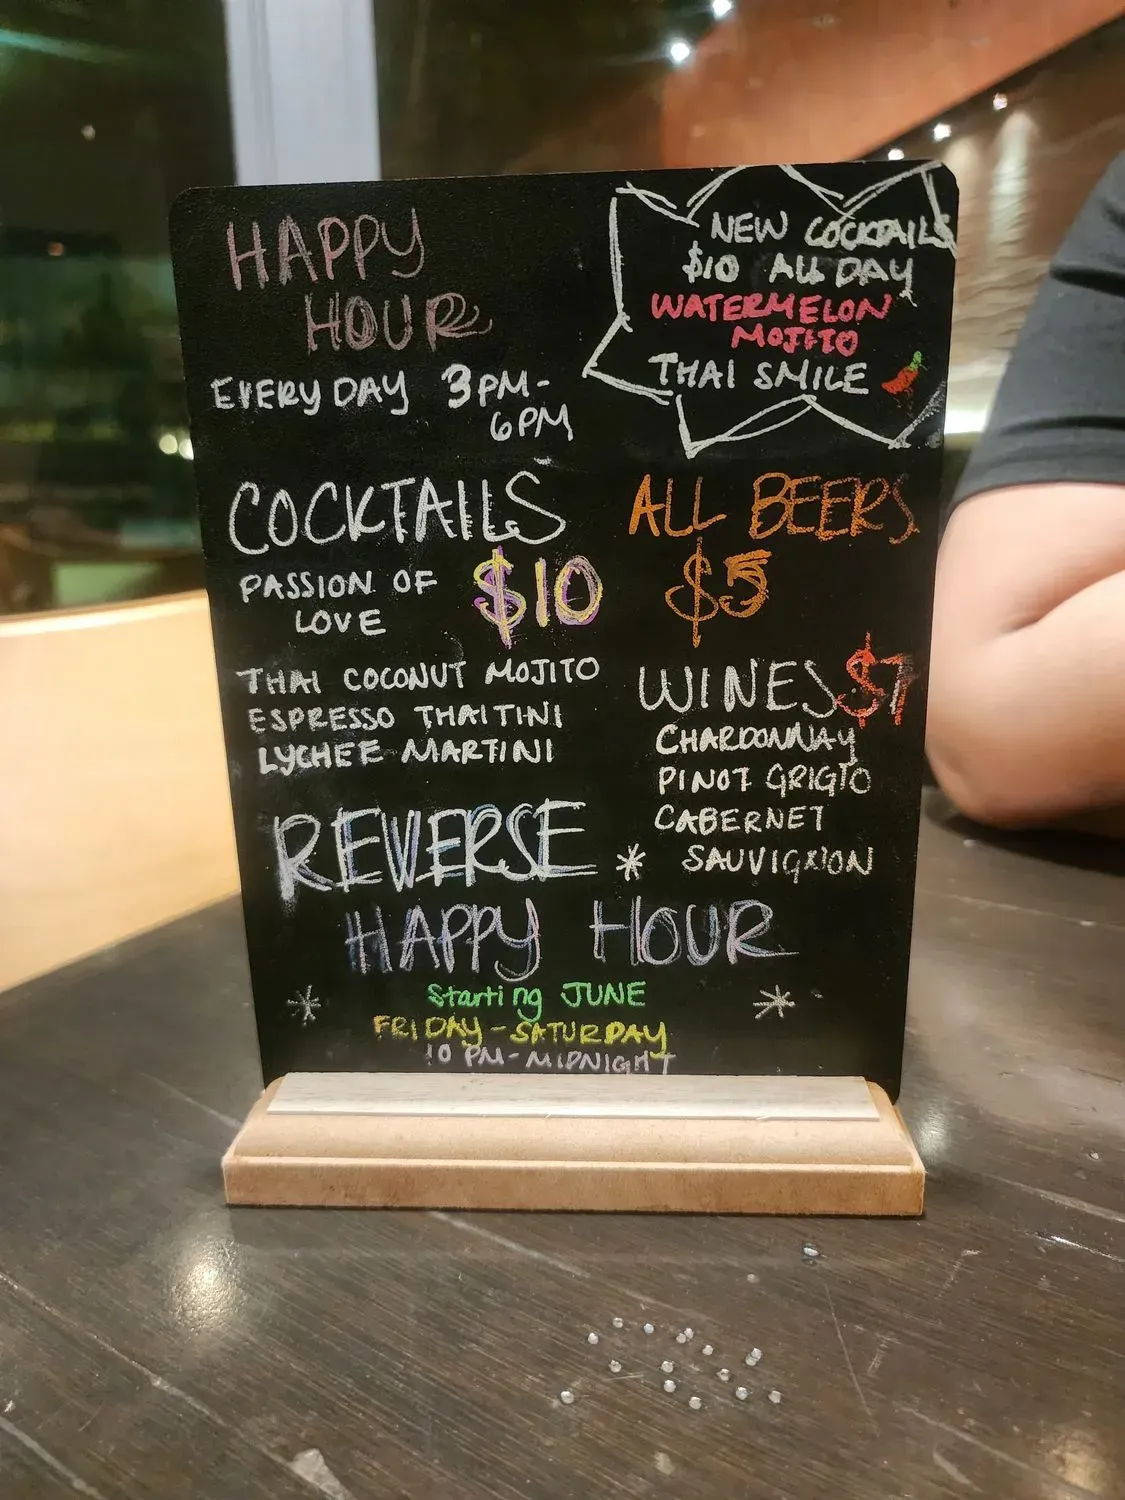 HAPPY
HOUR
EVERY DAY 3PM-
6PM
NEW COCKTAILS
$10 ALL DAY
WATERMELON
MOJITO
THAI SMILE
COCKTAILS
PASSION OF
LOVE
$10
THAI COCONUT MOJITO
ESPRESSO THAITINI
LYCHEE MARTINI
ALL BEERS
$5
WINES $7
CHARDONNAY
PINOT GRIGIO
CABERNET
SAUVIGNON
REVERSE
HAPPY HOUR
Starting JUNE
FRIDAY-SATURDAY
10 PM-MIDNIGHT